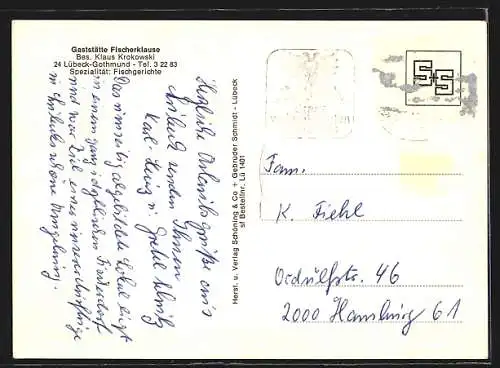 Gaststätte Fischerklause
Bes. Klaus Krokowski
24 Lübeck-Gothmund - Tel. 3 22 83
Spezialität: Fischgerichte
Herzliche Urlaubsgrüße aus
Lübeck senden Ihnen
Karl-Heinz u.
Das umseitig abgebildete Lokal liegt
in einem ganz idyllischen Fischerdorf
und war Ziel einer
in Lübecks schöne Umgebung.
Herst. u. Verlag Schöning & Co + Gebrüder Schmidt - Lübeck
sf Bestellnr. Lü 1401
Fam.
K. Fiehl
Ordulfstr. 46
2000 Hamburg 61